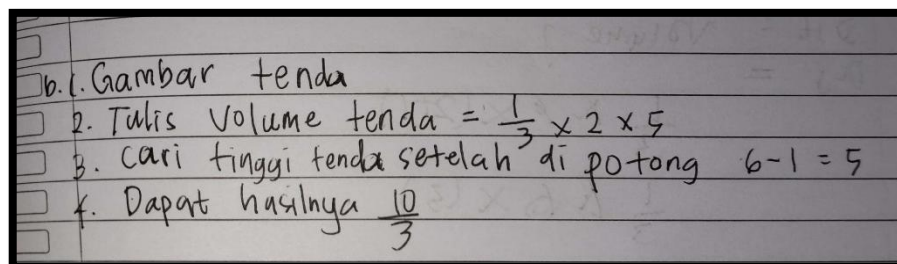 b. 1. Gambar tenda
2. Tulis Volume tenda = 1/3 x 2 x 5
3. Cari tinggi tenda setelah di potong 6-1 = 5
4. Dapat hasilnya 10/3